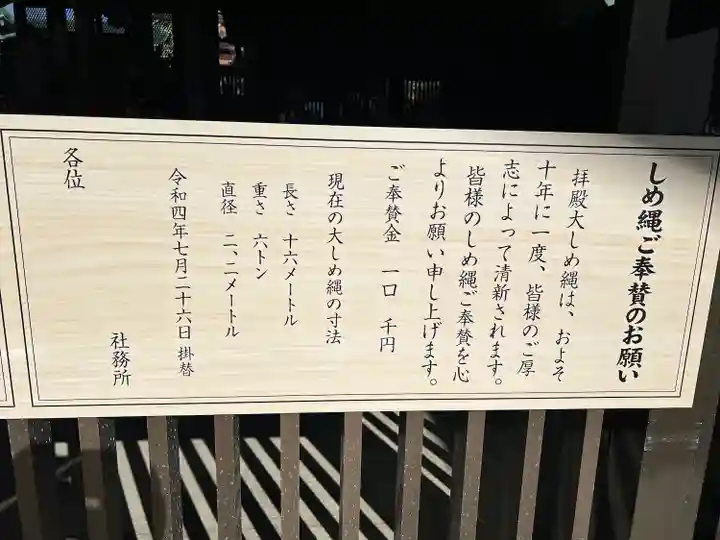 しめ縄ご奉賛のお願い
拝殿大しめ縄は、およそ
十年に一度、皆様のご厚
志によって清新されます。
皆様のしめ縄ご奉賛を心
よりお願い申し上げます。
ご奉賛金 一口 千円
現在の大しめ縄の寸法
長さ 十六メートル
重さ 六トン
直径 二、二メートル
令和四年七月二十六日 掛替
社務所
各位